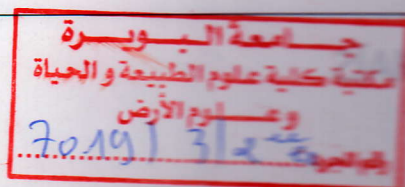 جامعة البويرة
مكتبة كلية علوم الطبيعة و الحياة
وعلوم الأرض
رقم الجرد 7019/3/2